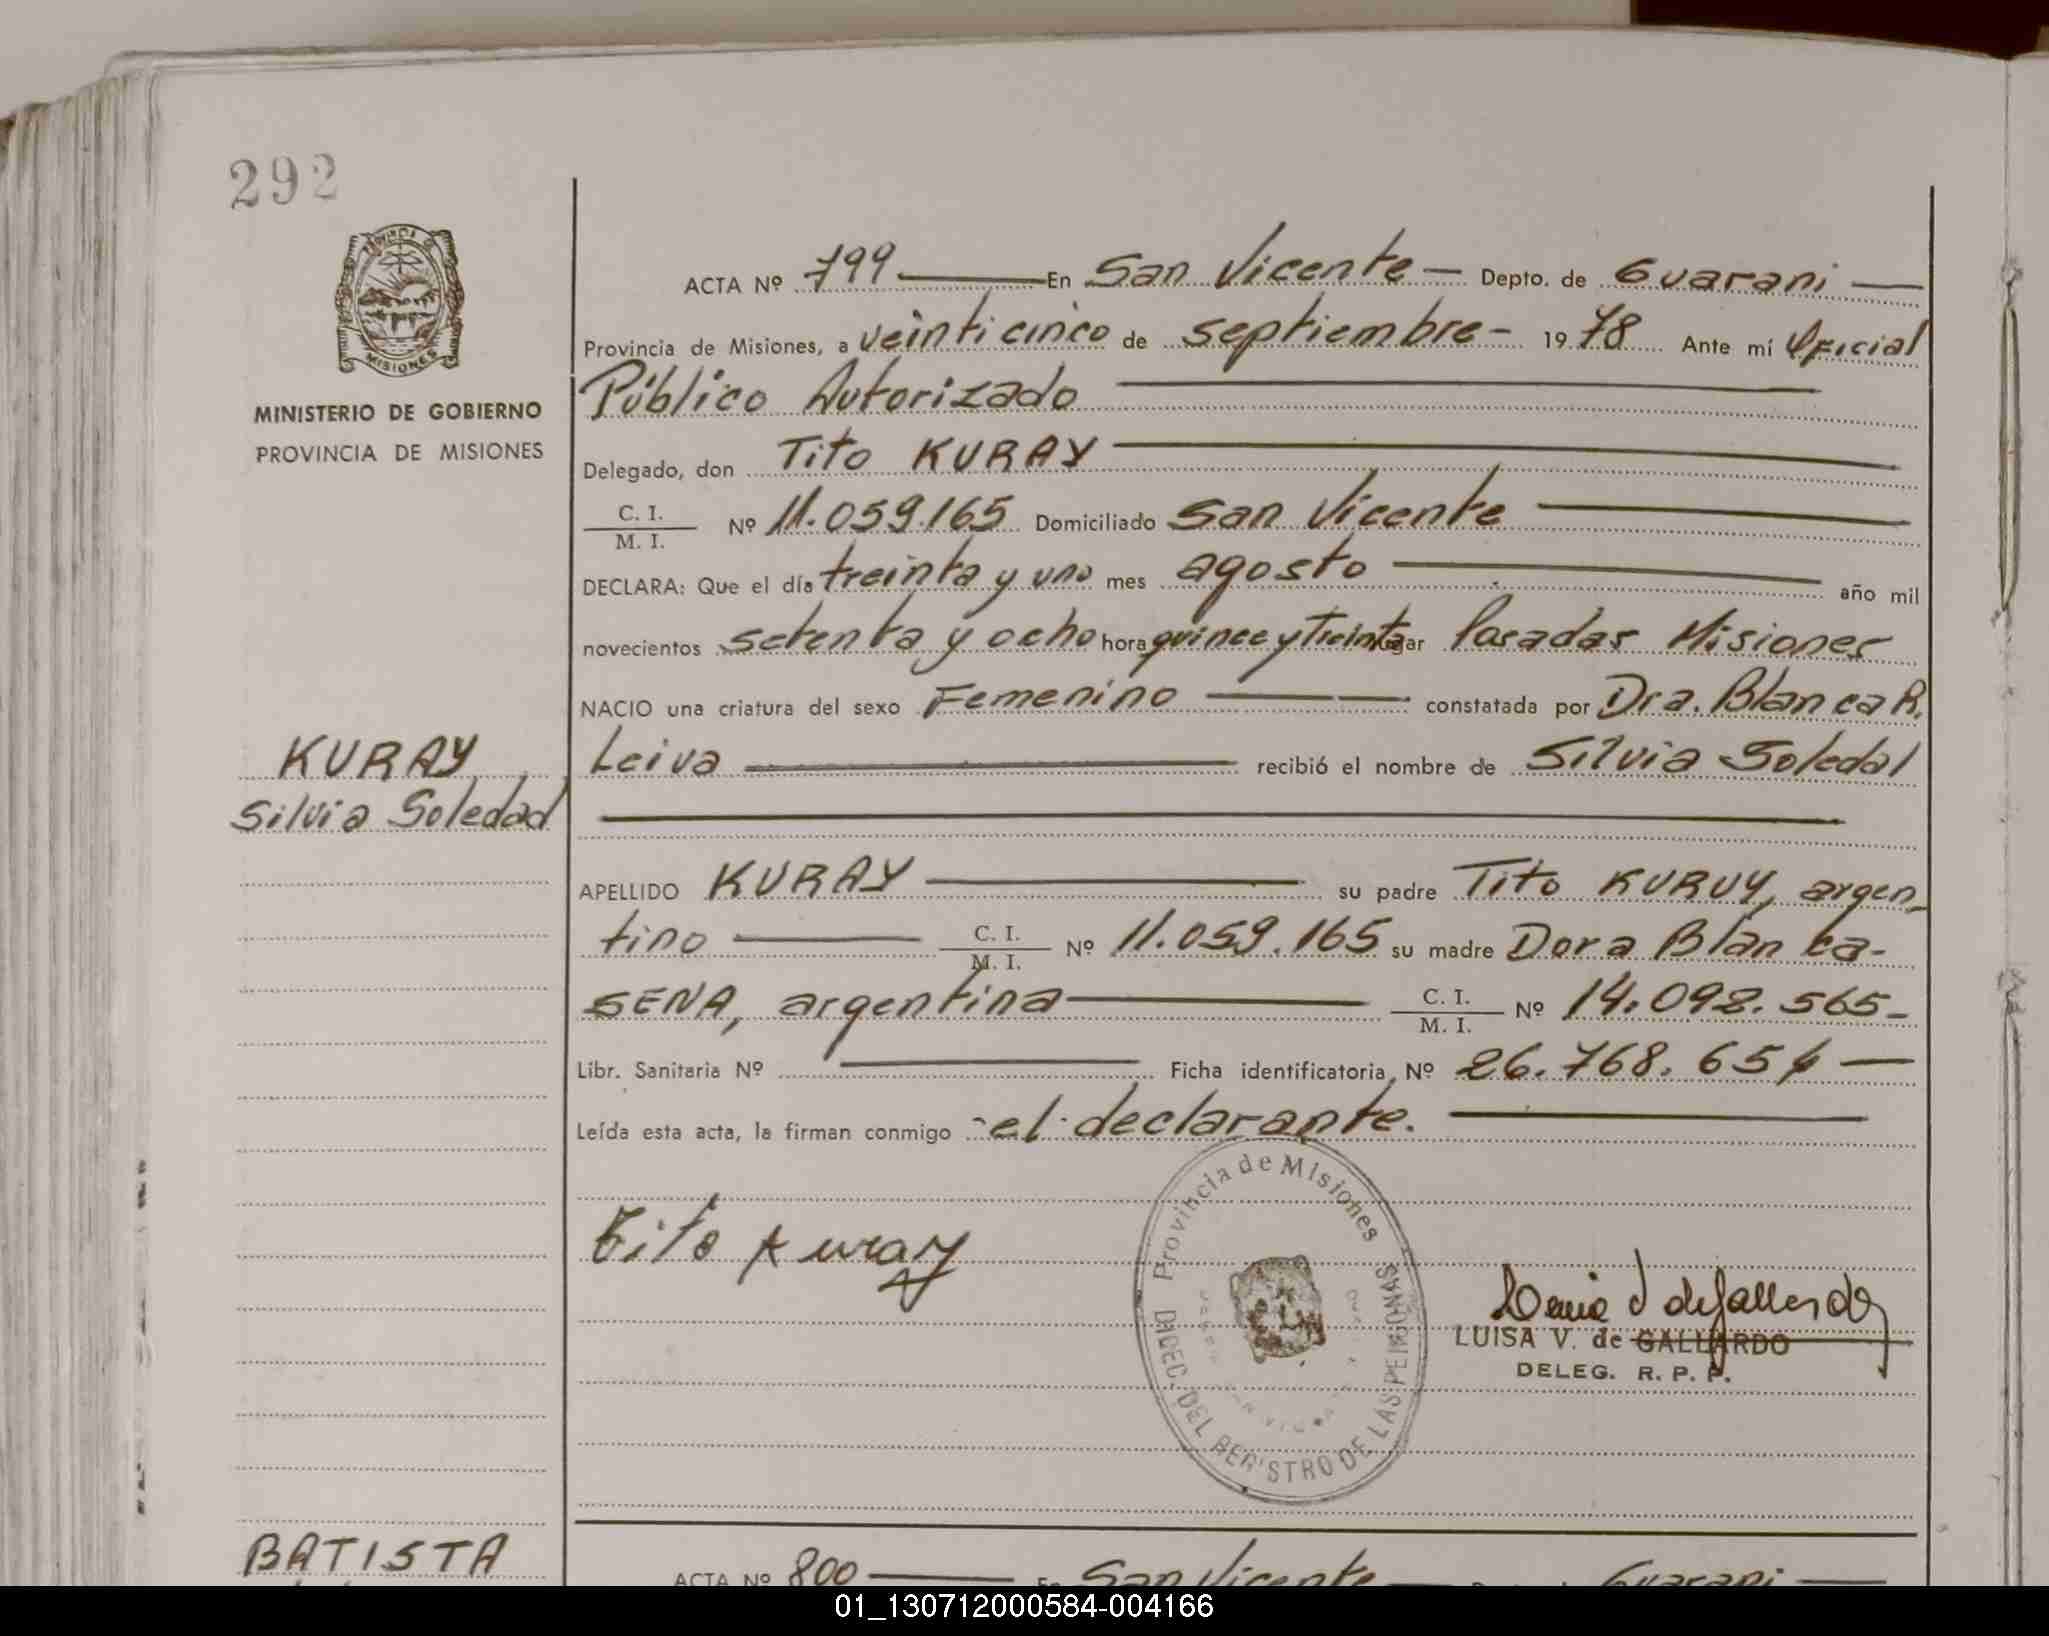 292
PROVINCIA DE
MISIONES
MINISTERIO DE GOBIERNO
PROVINCIA DE MISIONES
ACTA Nº 799 En San Vicente Depto. de Guarani
Provincia de Misiones, a veinticinco de septiembre 1978 Ante mí Oficial
Público Autorizado
Delegado, don Tito KURAY
C. I.
M. I. Nº 11.059.165 Domiciliado San Vicente
DECLARA: Que el día treinta y uno mes agosto año mil
novecientos setenta y ocho hora quince y treinta lugar Posadas Misiones
NACIO una criatura del sexo Femenino constatada por Dra. Blanca R.
Leiva recibió el nombre de Silvia Soledad
KURAY
Silvia Soledad
APELLIDO KURAY su padre Tito KURUY, argen-
tino C. I.
M. I. Nº 11.059.165 su madre Dora Blanca-
SENA, argentina C. I.
M. I. Nº 14.092.565-
Libr. Sanitaria Nº Ficha identificatoria Nº 26.768.654
Leída esta acta, la firman conmigo -el declarante.
Tito Kuray
Provincia de Misiones
DIREC. DEL REGISTRO DE LAS PERSONAS
LUISA V. de GALLARDO
DELEG. R. P. P.
BATISTA
ACTA Nº 800 En San Vicente Guarani
01_130712000584-004166